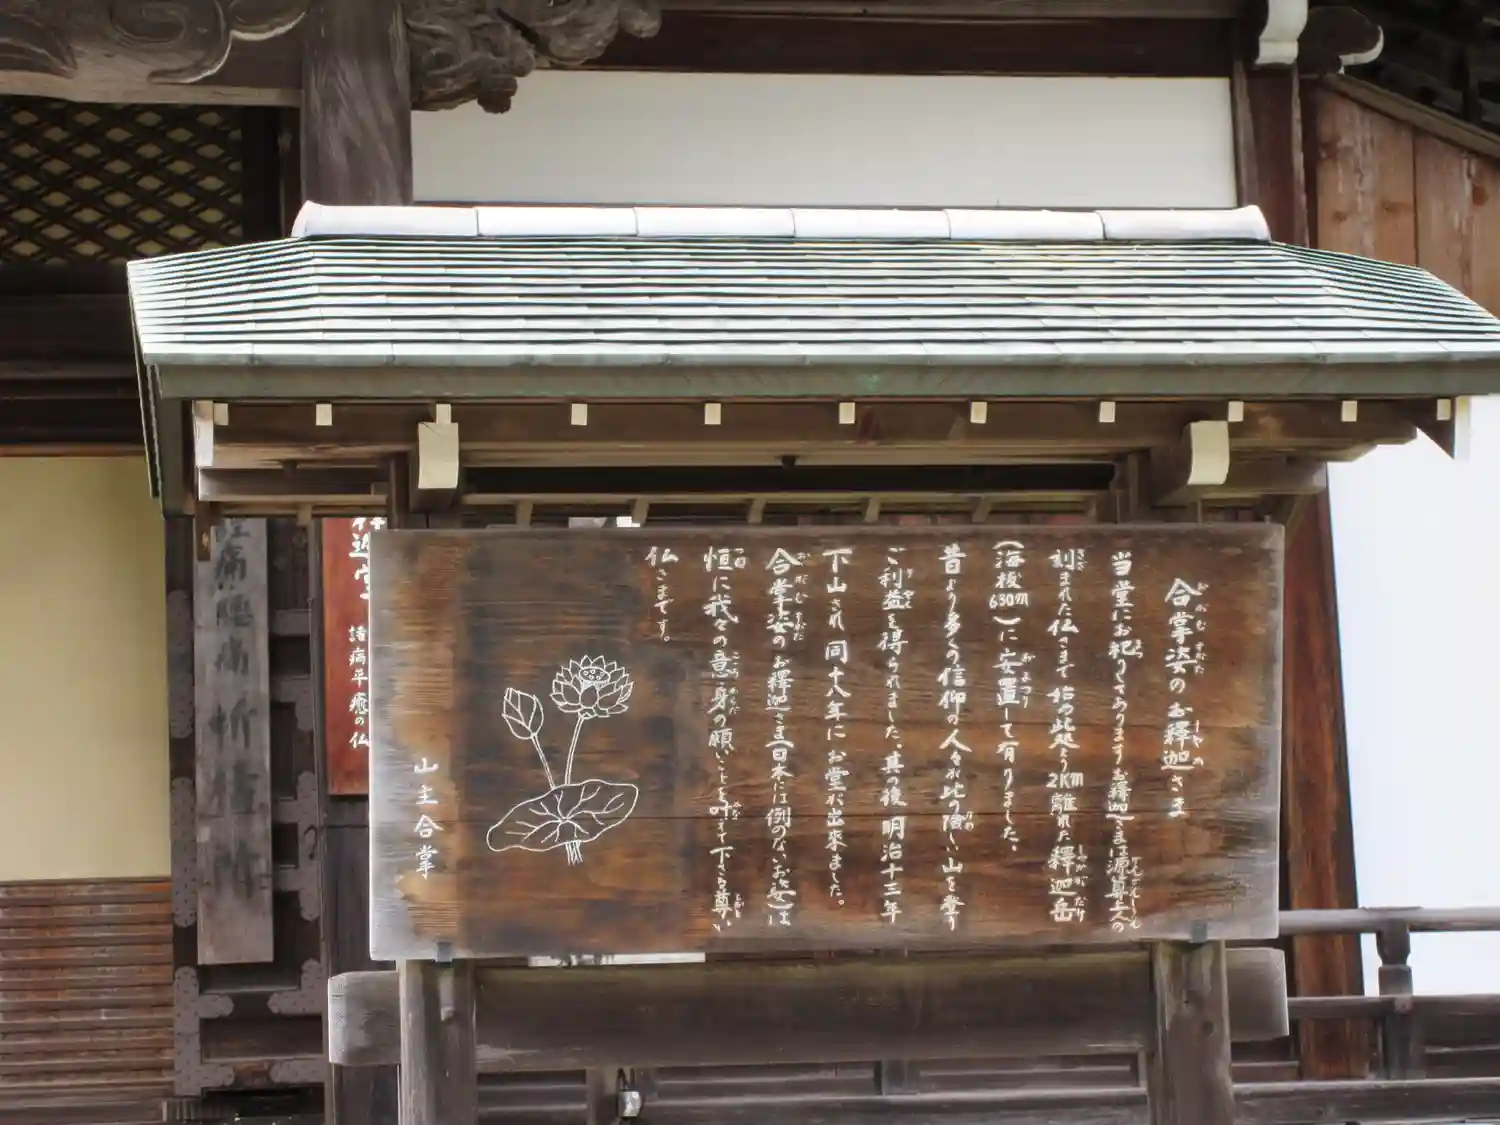 合掌姿のお釋迦さま
当堂にお祀りしてありますお釋迦さまは源算上人の
刻まれた仏さまで 始め此処より2KM離れた釋迦岳
(海抜630m)に安置して有りました。
昔より多くの信仰の人々が此の険しい山を登り
ご利益を得られました。其の後明治十三年
下山され同十八年にお堂が出來ました。
合掌姿のお釋迦さま(日本には例のないお姿)は
恒に我々の意・身の願いごとを叶えて下さる尊い
仏さまです。
山主合掌
釋迦堂
諸病平癒の仏
腰痛祈禱所